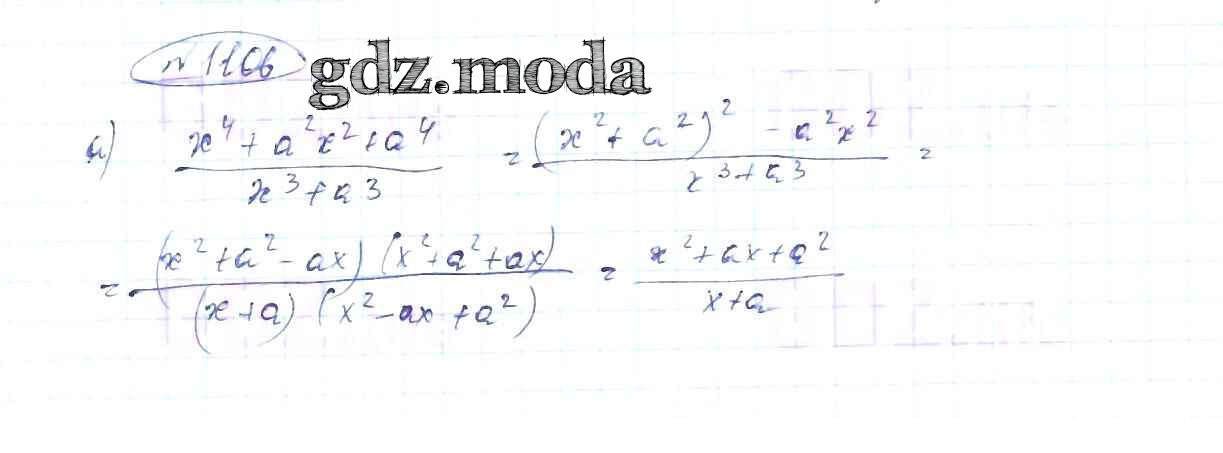 № 1166 gdz.moda
а) (x⁴ + a²x² + a⁴)/(x³ + a³) = ((x² + a²)² - a²x²)/(x³ + a³) =
= ((x² + a² - ax)(x² + a² + ax))/((x + a)(x² - ax + a²)) = (x² + ax + a²)/(x + a)